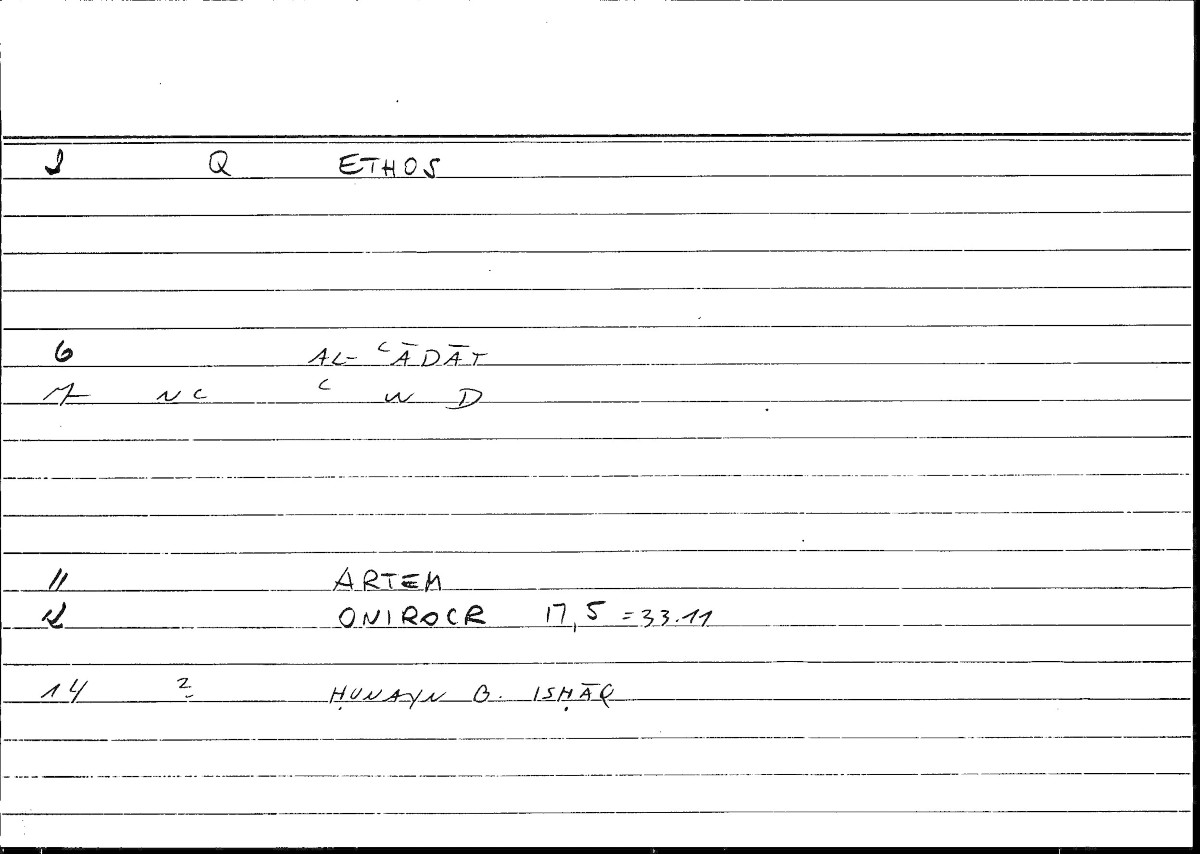 1 Q ETHOS
6 AL-ʿĀDĀT
7 NC ʿ W D
11 ARTEM
12 ONIROCR 17,5 = 33.11
14 2 ḤUNAYN B. ISḤĀQ